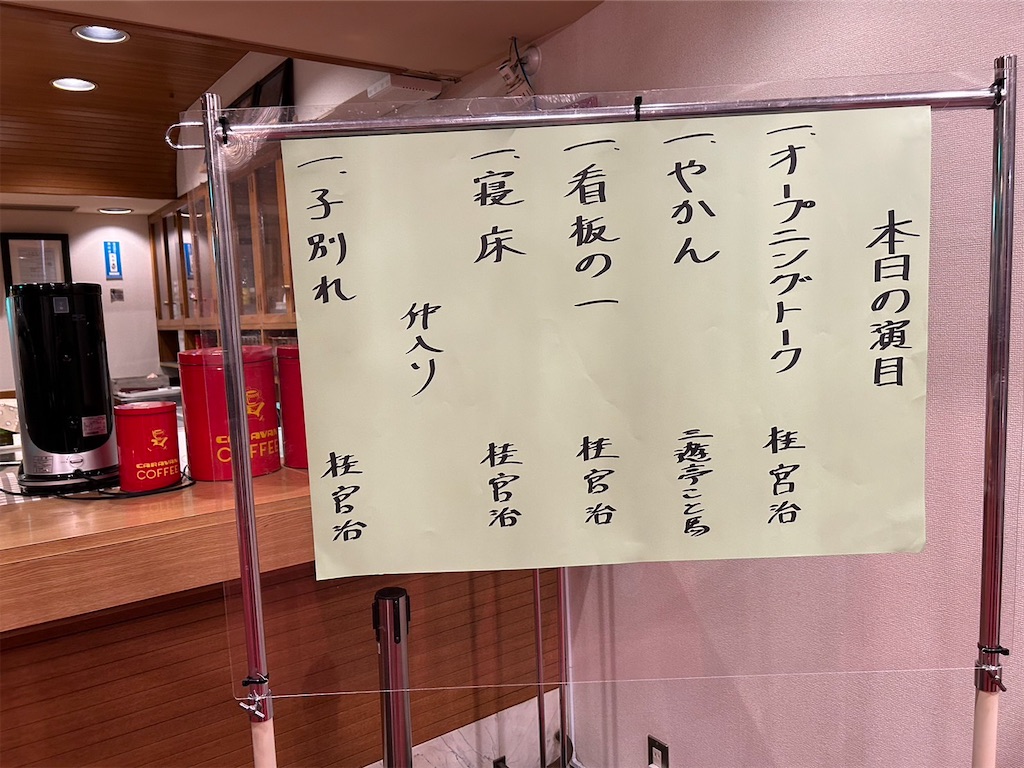 本日の演目
一、オープニングトーク 桂宮治
一、やかん 三遊亭こと馬
一、看板の一 桂宮治
一、寝床 桂宮治
仲入り
一、子別れ 桂宮治
CARAVAN
COFFEE
CARAVAN
COFFEE